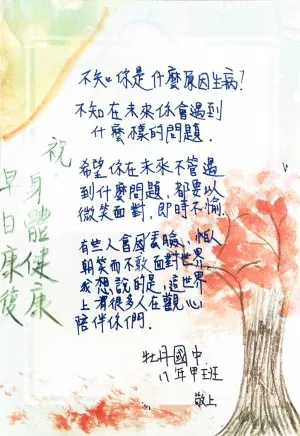 不知你是什麼原因生病?
不知在未來你會遇到
什麼樣的問題.
希望你在未來不管遇
到什麼問題,都要以
微笑面對,即時不愉.
有些人會因丟臉、怕人
朝笑而不敢面對世界
我想說的是,這世界
上有很多人在觀心
陪伴你們.
牡丹國中
八年甲班
敬上
祝
身體健康
早日康復